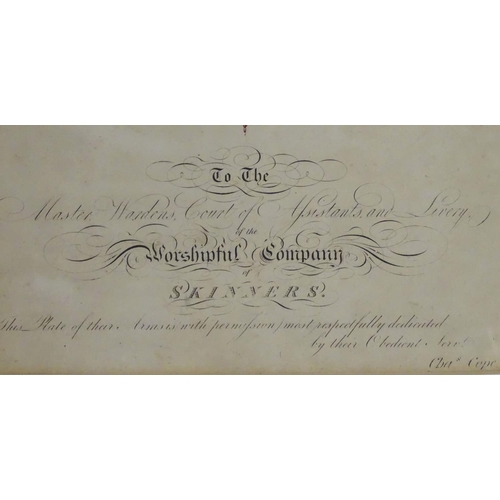 To The
Master Wardens, Court of Assistants, and Livery,
of the
Worshipful Company
of
SKINNERS.
This Plate of their Arms is with permission) most respectfully dedicated
by their Obedient Servt
Chas. Cope